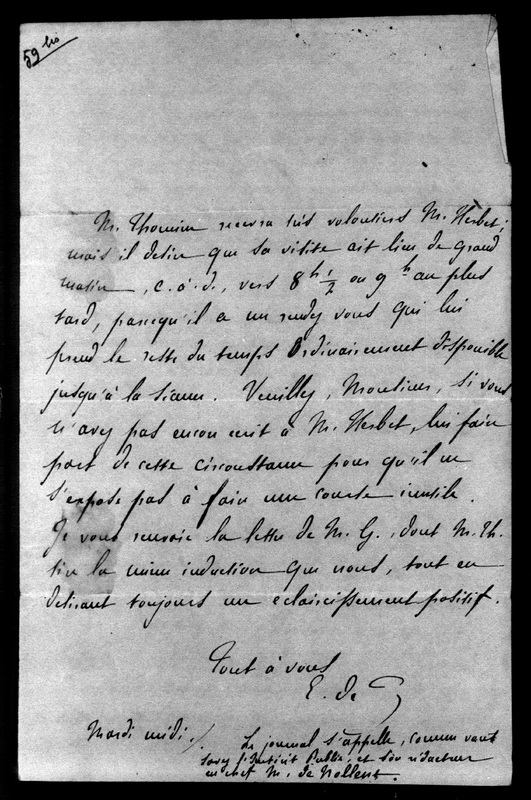 59 bis
M. Thomine recevra très volontiers M. Herbet;
mais il désire que sa visite ait lieu de grand
matin, c. à d., vers 8 h 1/2 ou 9 h au plus
tard, parcequ'il a un rendez vous qui lui
prend le reste du temps ordinairement disponible
jusqu'à la séance. Veuillez, Monsieur, si vous
n'avez pas encore écrit à M. Herbet, lui faire
part de cette circonstance pour qu'il ne
s'expose pas à faire une course inutile.
Je vous renvoie la lettre de M. G., dont M. Th.
tire la même induction que nous, tout en
désirant toujours un éclaircissement positif.
Tout à vous
E. de
Mardi midi.
Le journal s'appelle, comme vous
savez l'Intérêt Public, et son rédacteur
en chef M. de Nollent.